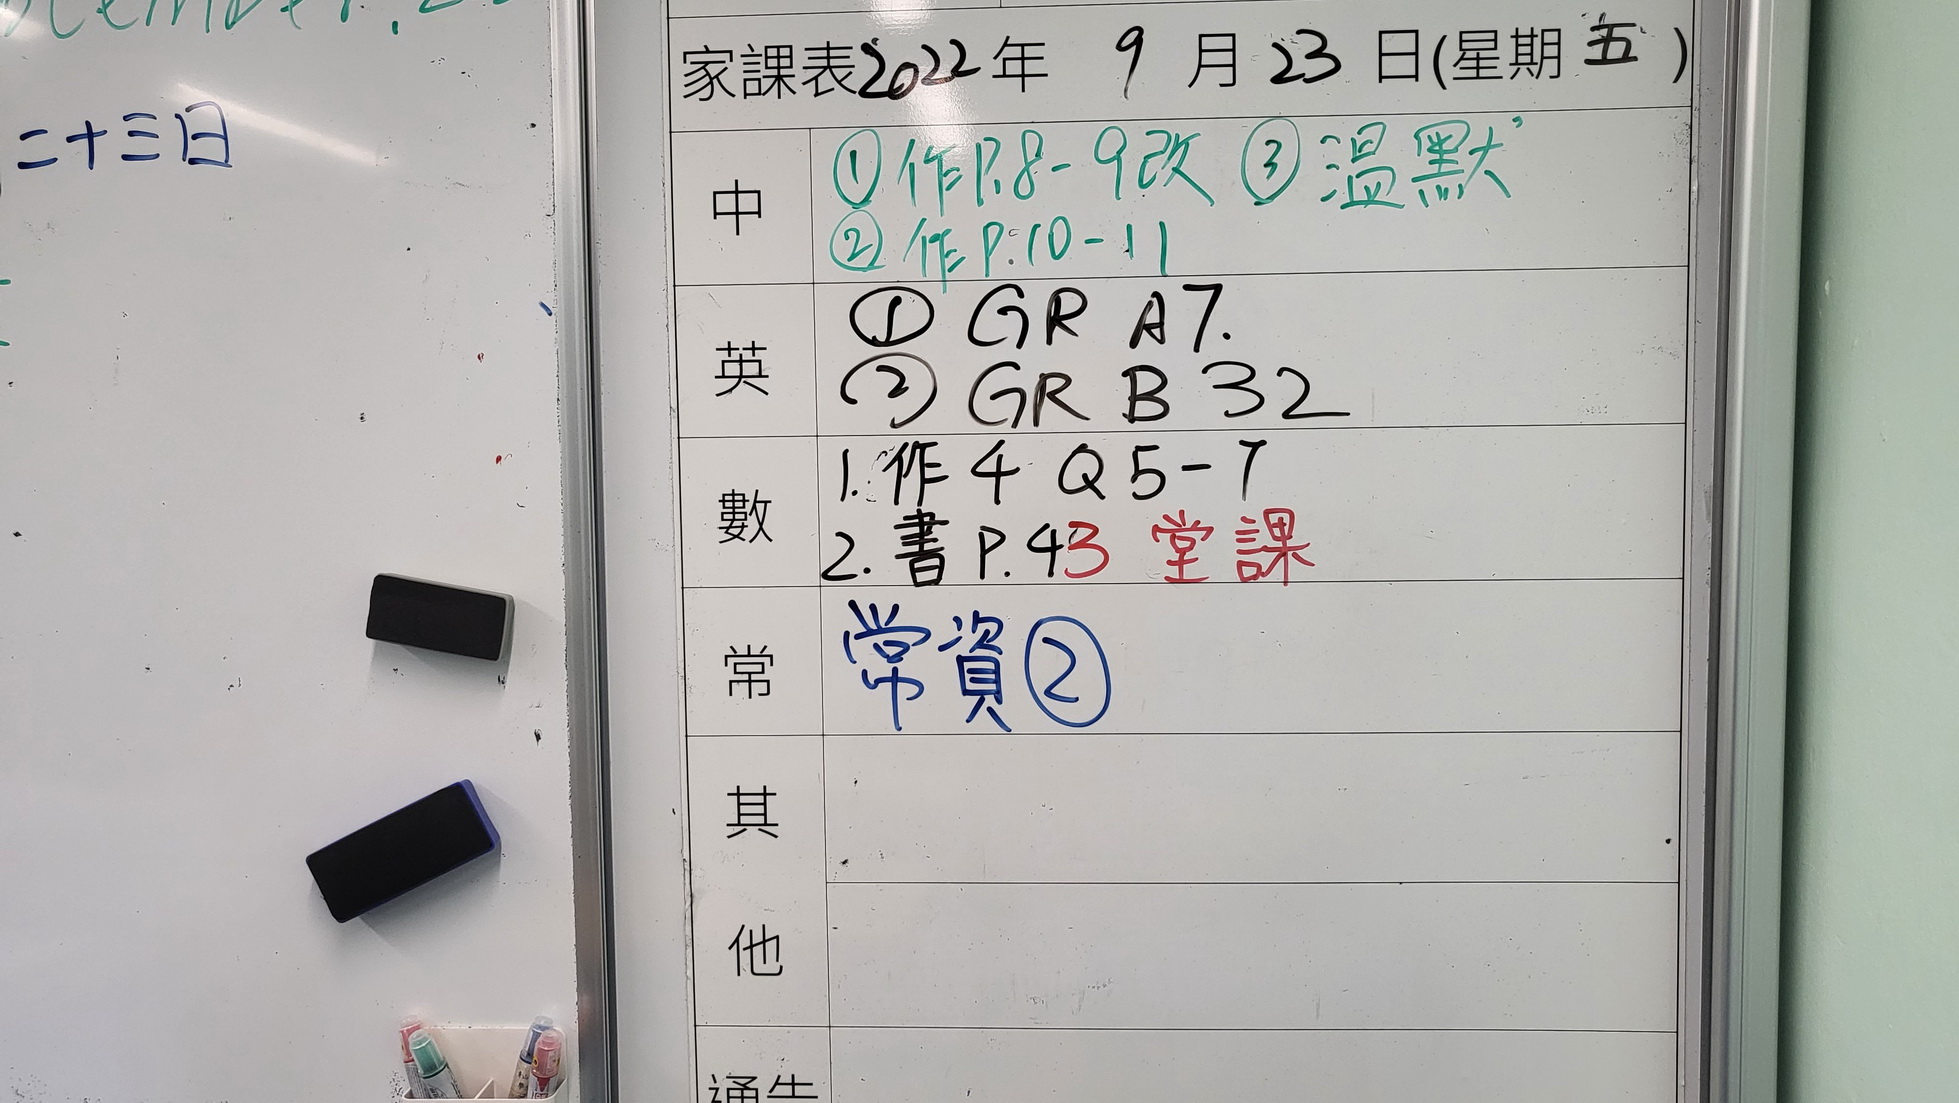 二十三日
家課表2022年 9月23日(星期五)
中
①作P.8-9改 ③溫默
②作P.10-11
英
① GR A7.
② GR B 32
數
1.作4 Q5-7
2.書P.43 堂課
常
常資②
其
他
通告